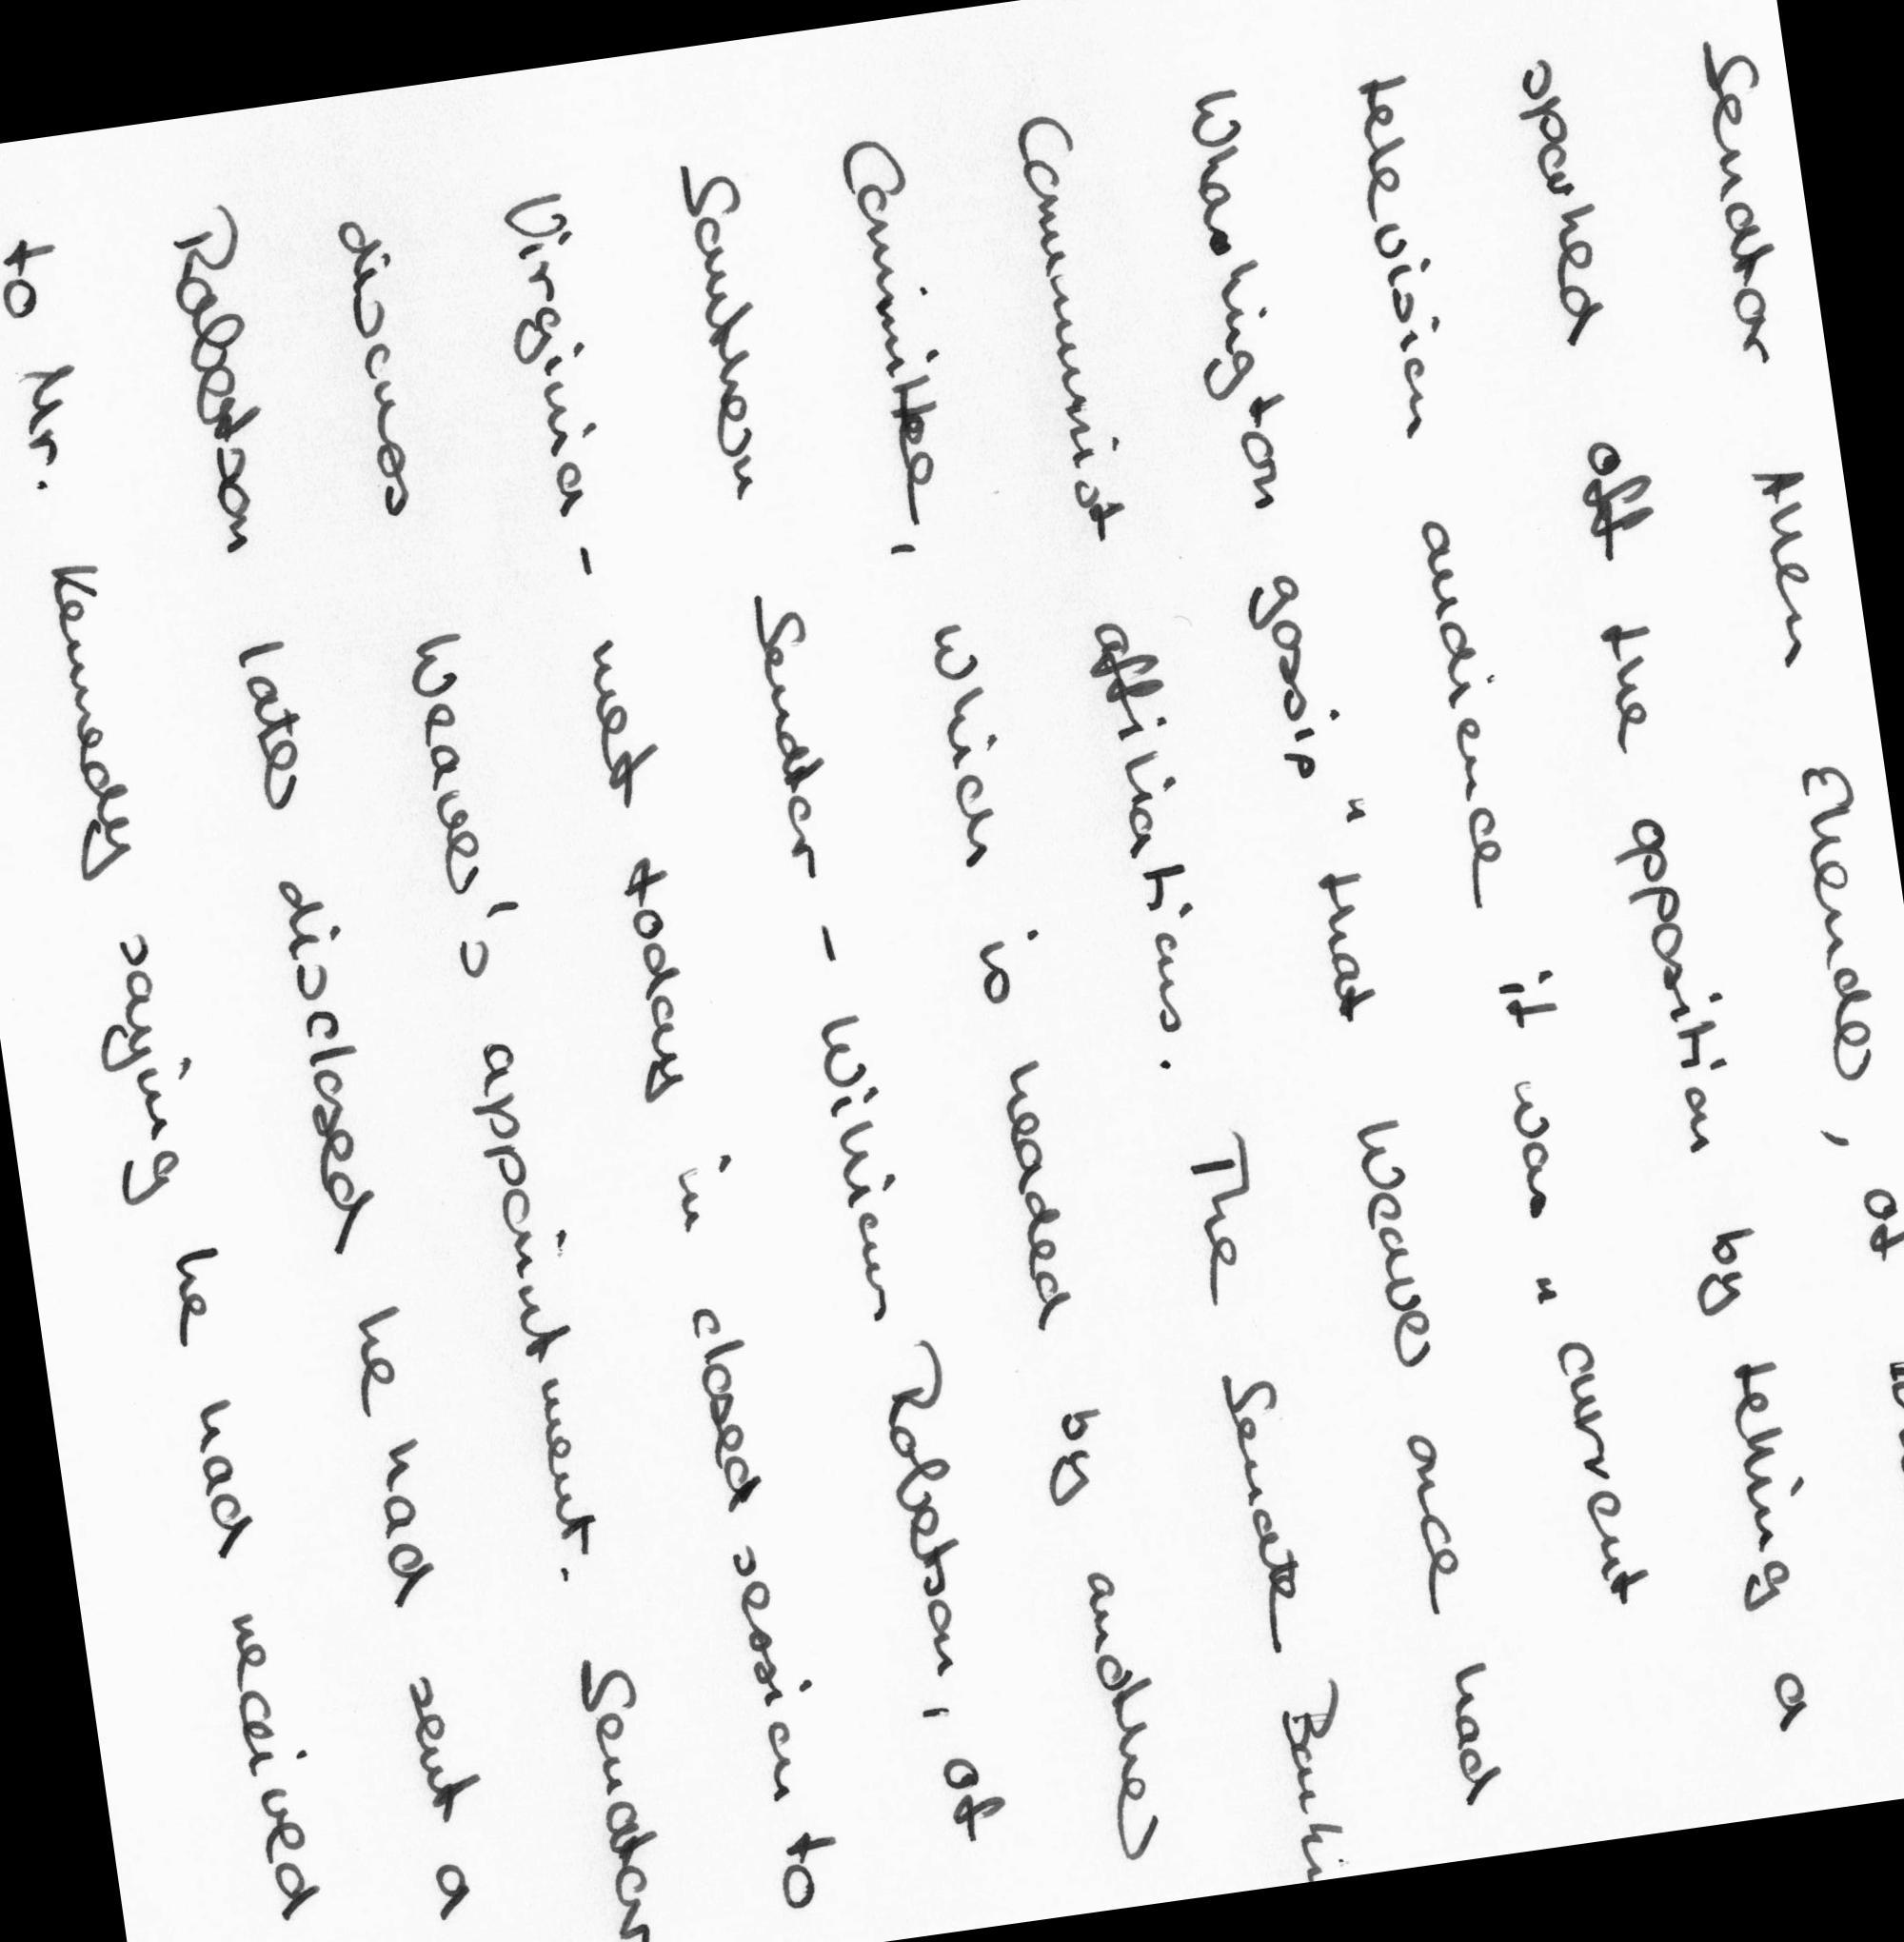 Senator Allen Ellender, of
sparked off the opposition by telling a
television audience it was " current
Whashington gossip " that Weaver once had
Communist affiliations. The Senate
Committee, which is headed by another
Southern Senator - William Robertson, of
Virginia - met today in closed session to
discuss Weaver's appointment. Senator
Robertson later disclosed he had sent a
to Mr. Kennedy saying he had received